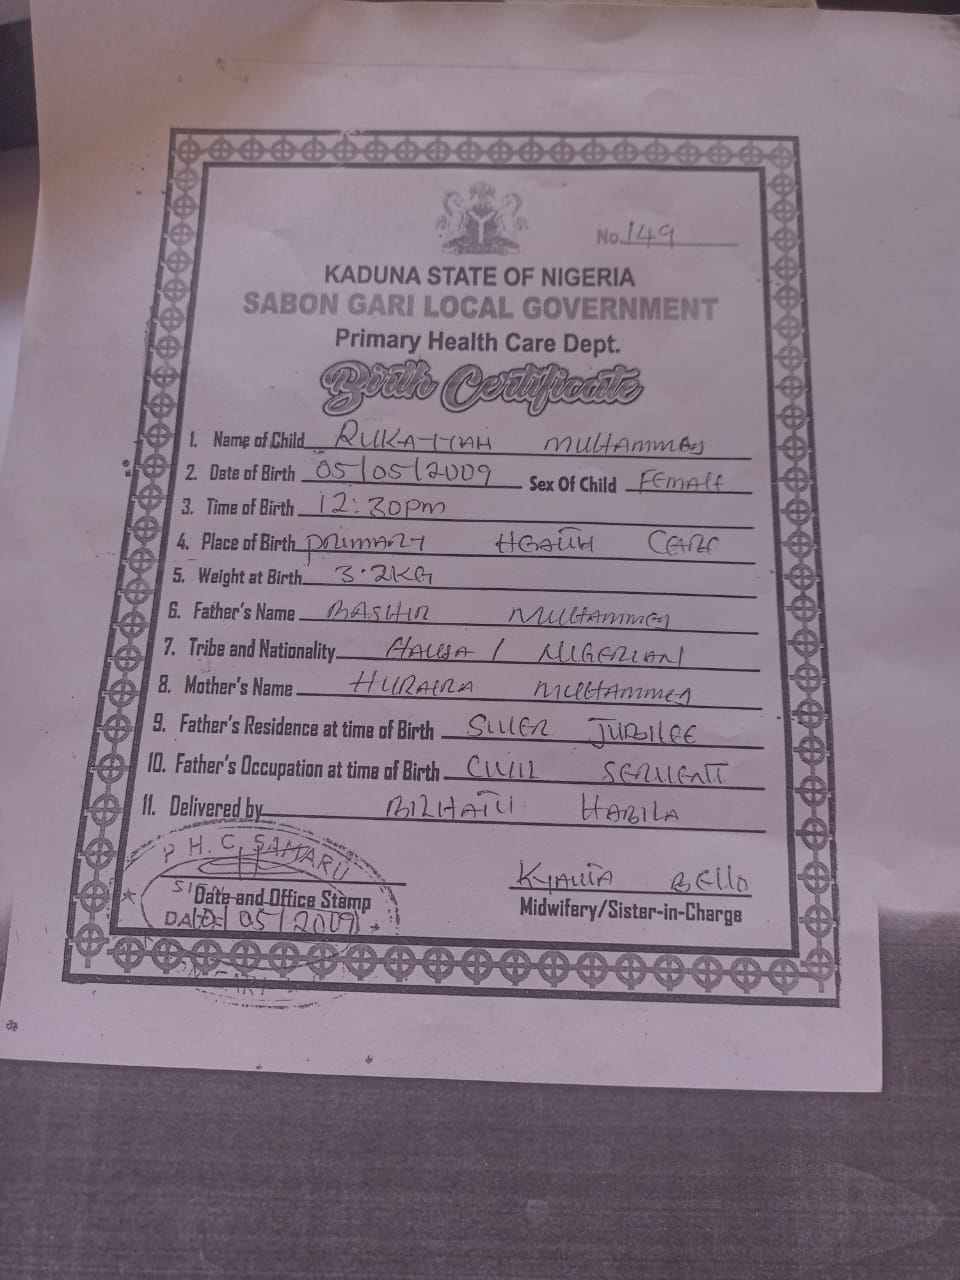 No. 149
KADUNA STATE OF NIGERIA
SABON GARI LOCAL GOVERNMENT
Primary Health Care Dept.
Birth Certificate
1. Name of Child RUKAIYAH MUHAMMED
2. Date of Birth 05/05/2009 Sex Of Child FEMALE
3. Time of Birth 12:30pm
4. Place of Birth PRIMARY HEALTH CARE
5. Weight at Birth 3.2KG
6. Father's Name BASHIR MUHAMMED
7. Tribe and Nationality HAUSA / NIGERIAN
8. Mother's Name HURAIRA MUHAMMED
9. Father's Residence at time of Birth SILVER JUBILEE
10. Father's Occupation at time of Birth CIVIL SERVENT
11. Delivered by HABILA
P.H.C. SAMARU
BELLO
Date and Office Stamp
Midwifery/Sister-in-Charge
05/2009